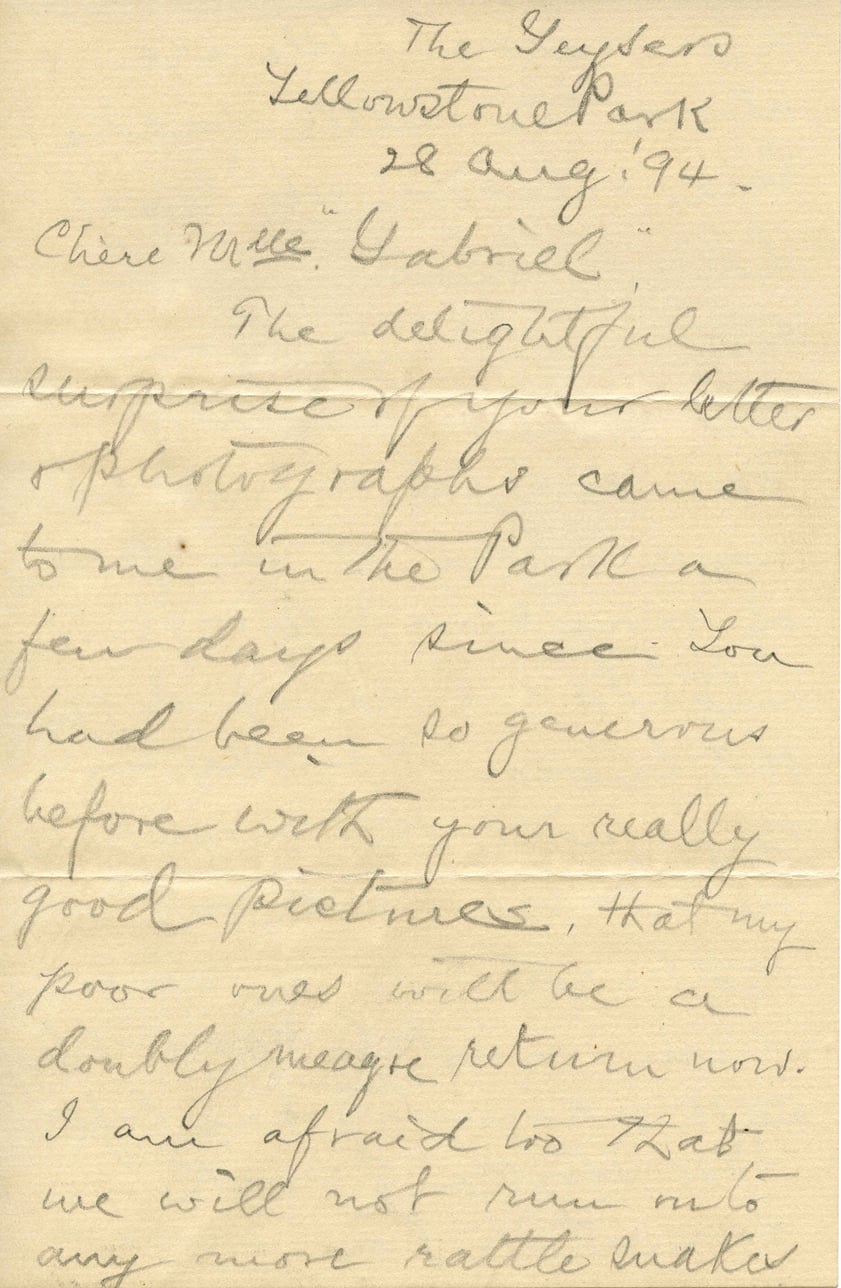 The Geysers
Yellowstone Park
28 Aug. '94.
Chère Mlle. "Gabriel",
The delightful
surprise of your letter
& photographs came
to me in the Park a
few days since. You
had been so generous
before with your really
good pictures, that my
poor ones will be a
doubly meagre return now.
I am afraid too that
we will not run onto
any more rattle snakes